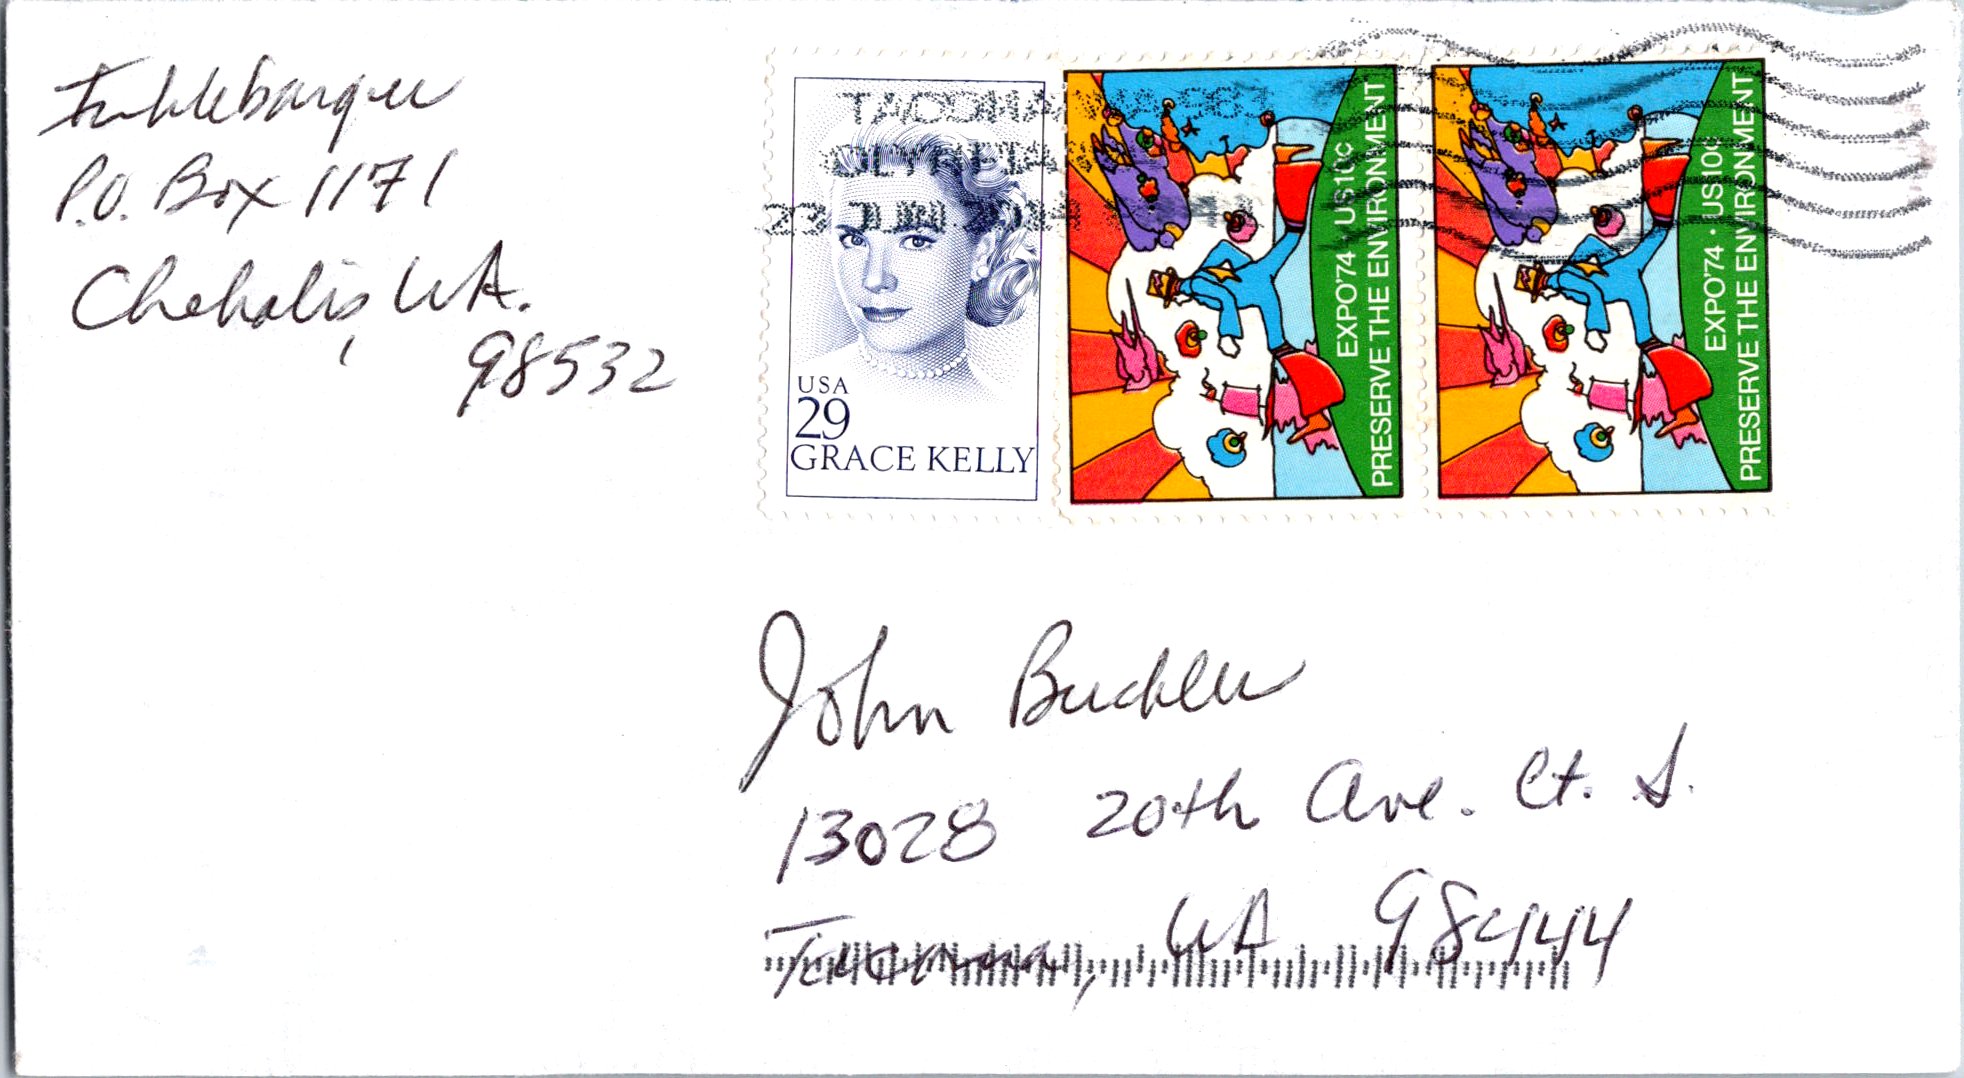 P.O. Box 1171
Chehalis, WA.
98532
TACOMA WA 983
OLYMPIA
23 JUN
USA
29
GRACE KELLY
EXPO'74 US10C
PRESERVE THE ENVIRONMENT
EXPO'74 · US10C
PRESERVE THE ENVIRONMENT
John Buckler
13028 20th Ave. Ct. S.
Tacoma, WA 98444